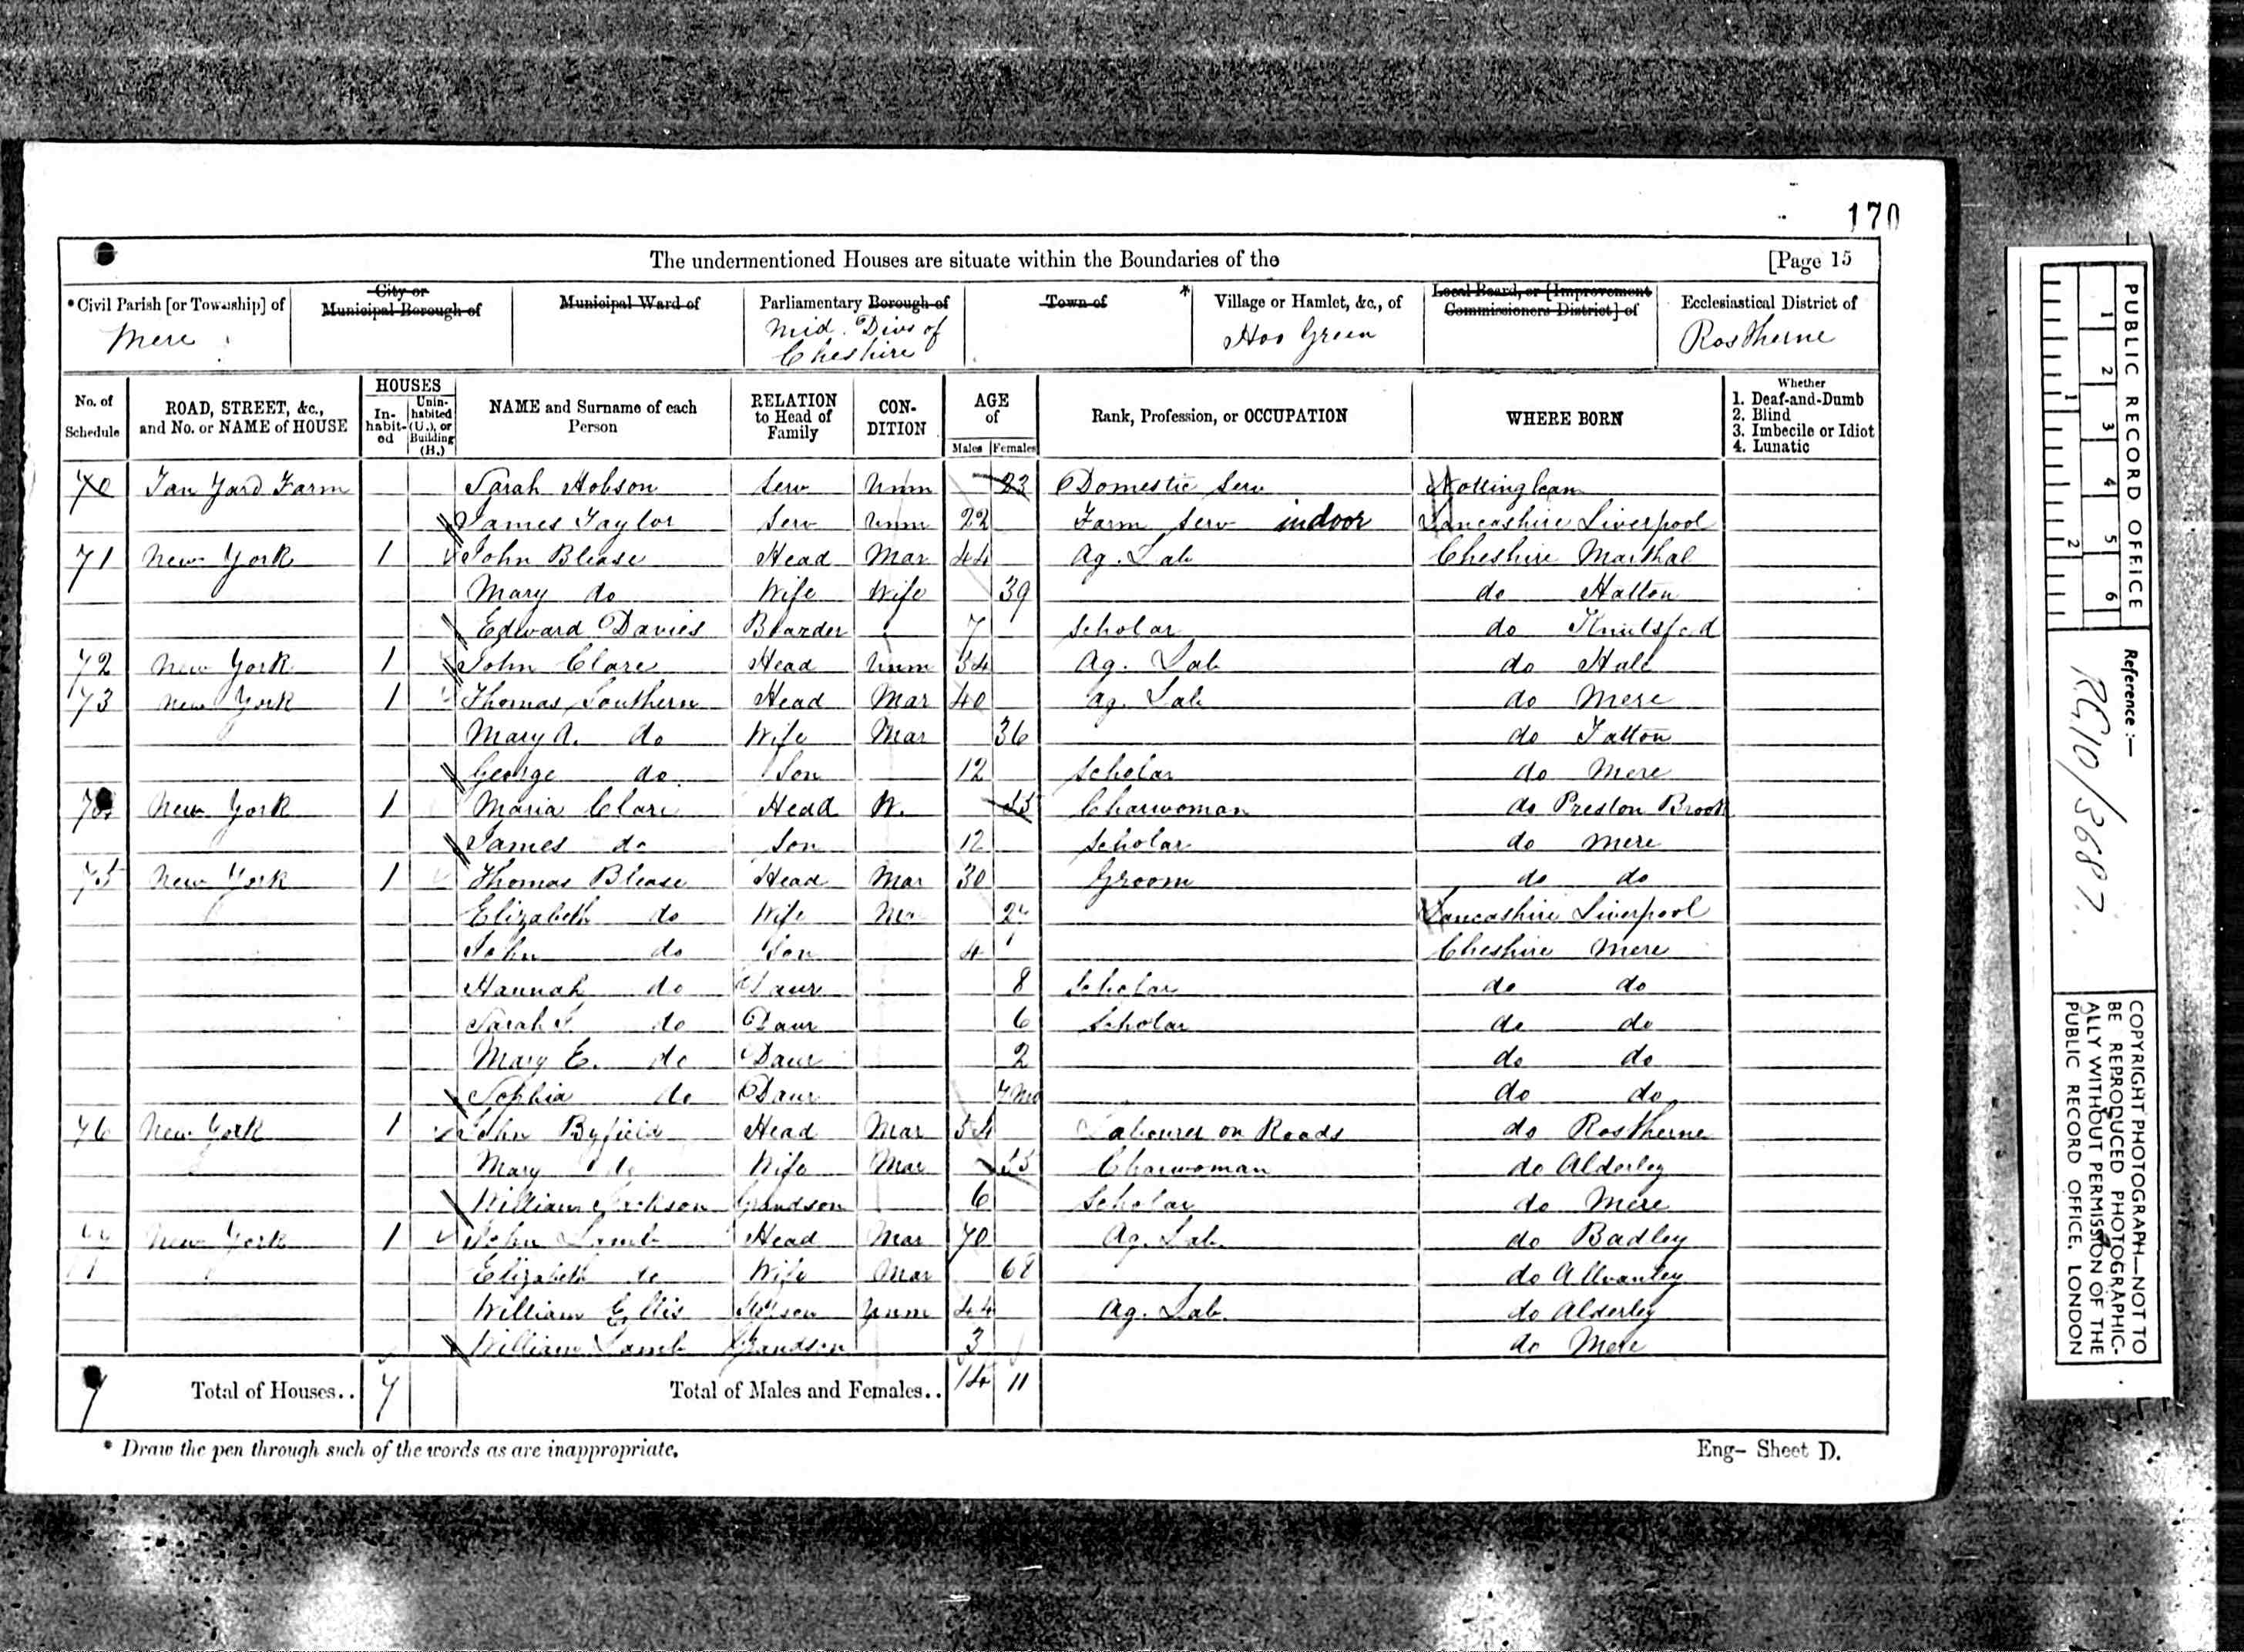 170
The undermentioned Houses are situate within the Boundaries of the [Page 15
*Civil Parish [or Township] of City or Municipal Borough of Municipal Ward of Parliamentary Borough of Town of * Village or Hamlet, &c., of Local Board, or [Improvement Commissioners District] of Ecclesiastical District of
Mere Mid. Divs of Cheshire Hoo Green Rostherne
No. of Schedule ROAD, STREET, &c., and No. or NAME of HOUSE HOUSES Inhabited Uninhabited (U.), or Building (B.) NAME and Surname of each Person RELATION to Head of Family CONDITION AGE of Males Females Rank, Profession, or OCCUPATION WHERE BORN Whether 1. Deaf-and-Dumb 2. Blind 3. Imbecile or Idiot 4. Lunatic
70 Tan Yard Farm Sarah Hobson Serv Unm 23 Domestic Serv Nottingham
James Taylor Serv Unm 22 Farm Serv indoor Lancashire Liverpool
71 New York 1 John Blease Head Mar 44 Ag. Lab Cheshire Marthal
Mary do Wife Wife 39 do Halton
Edward Davies Boarder 7 Scholar do Knutsford
72 New York 1 John Clare Head Unm 34 Ag. Lab do Hale
73 New York 1 Thomas Southern Head Mar 40 Ag. Lab do Mere
Mary A. do Wife Mar 36 do Tatton
George do Son 12 Scholar do Mere
New York 1 Maria Clare Head W. 55 Charwoman do Preston Brook
James do Son 12 Scholar do Mere
75 New York 1 Thomas Blease Head Mar 30 Groom do do
Elizabeth do Wife Mar Lancashire Liverpool
John do Son 4 Cheshire Mere
Hannah do Daur 8 Scholar do do
Sarah do Daur 6 Scholar do do
Mary E. do Daur 2 do do
Sophia do Daur 7 Mo do do
76 New York 1 John Byfield Head Mar 54 Labourer on Roads do Rostherne
Mary do Wife Mar 55 Charwoman do Alderley
William Jackson Grandson 6 Scholar do Mere
77 New York 1 John Lamb Head Mar 70 Ag. Lab. do Badley
Elizabeth do Wife Mar 68 do Allvanley
William Ellis Unm 44 Ag. Lab. do Alderley
William Lamb Grandson 3 do Mere
7 Total of Houses.. 7 Total of Males and Females.. 14 11
* Draw the pen through such of the words as are inappropriate.
Eng- Sheet D.
PUBLIC RECORD OFFICE
1 2 3 4 5 6
1 2
Reference :-
RG10/3687
COPYRIGHT PHOTOGRAPH—NOT TO BE REPRODUCED PHOTOGRAPHICALLY WITHOUT PERMISSION OF THE PUBLIC RECORD OFFICE, LONDON